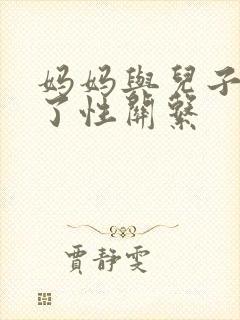 妈妈與兒子
了性關繫
賈靜雯